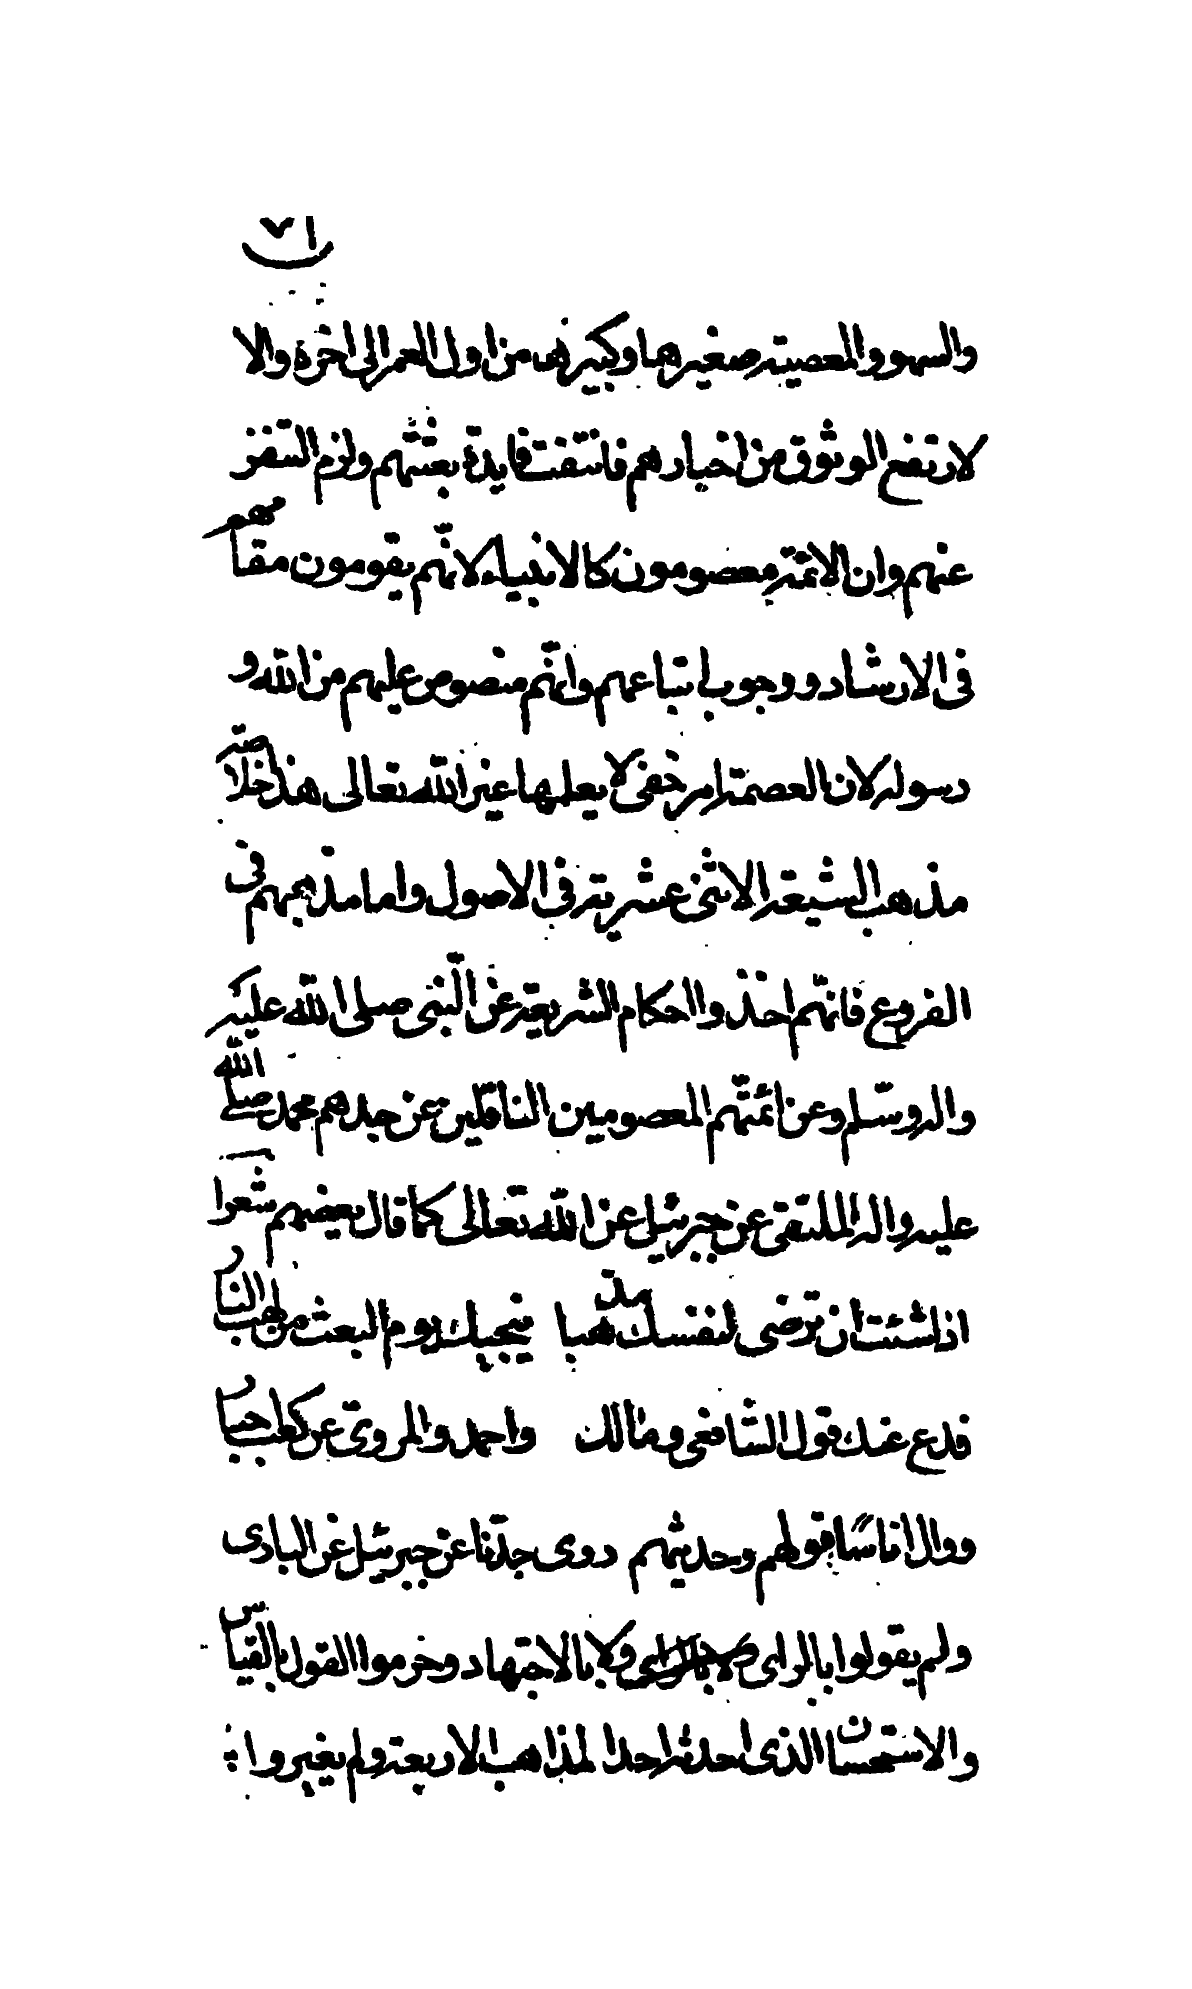 ١٧
والسهو والمعصية صغيرها وكبيرها من اول العمر الى اخره والا
لارتفع الوثوق من اخبارهم فانتفت فايدة بعثتهم ولزم التنفر
عنهم وان الائمة معصومون كالانبياء لانهم يقومون مقامهم
فى الارشاد ووجوب اتباعهم وانهم منصوص عليهم من الله و
رسوله لان العصمة امر خفى لا يعلمها غير الله تعالى هذا خلاصة
مذهب الشيعة الاثنى عشرية فى الاصول واما مذهبهم فى
الفروع فانهم اخذوا احكام الشريعة عن النبى صلى الله عليه
واله وسلم وعن ائمتهم المعصومين الناقلين عن جدهم محمد صلى الله
عليه واله الملتقى عن جبرئيل عن الله تعالى كما قال بعضهم شعرا
اذا شئت ان ترضى لنفسك مذهبا ينجيك يوم البعث من لهب النار
فدع عنك قول الشافعى ومالك واحمد والمروى عن كعب احبار
ووال اناسا قولهم وحديثهم روى جدنا عن جبرئيل عن البارى
ولم يقولوا بالراى ولا بالاجتهاد وحرموا القول بالقياس
والاستحسان الذى احدثه احدا لمذاهب الاربعة ولم يغيروا